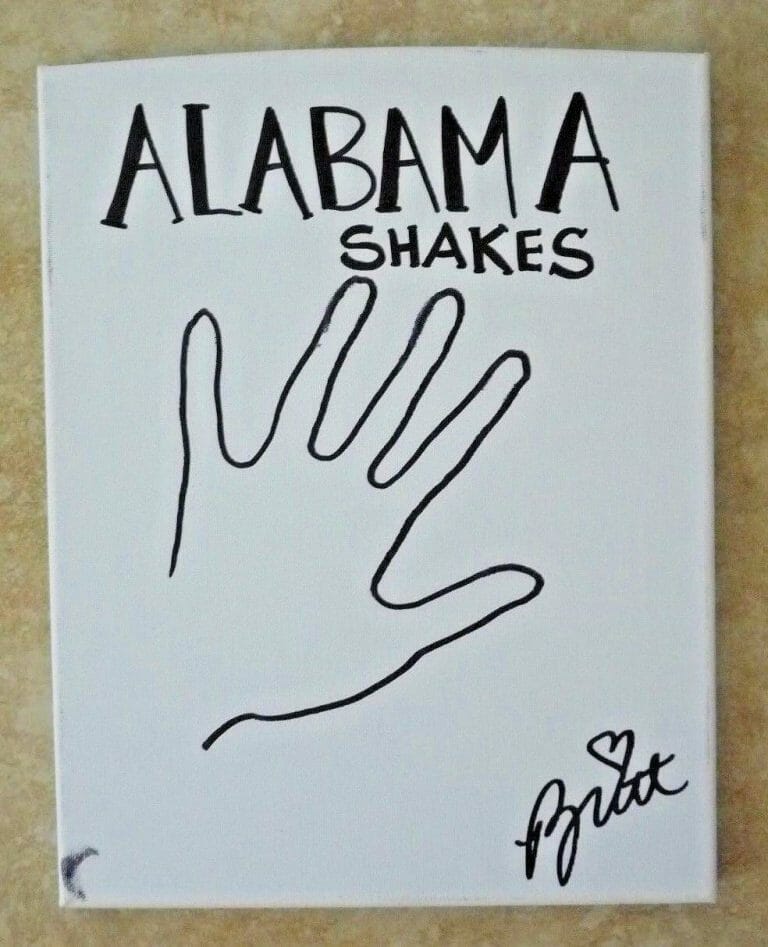 ALABAMA
SHAKES
Britt